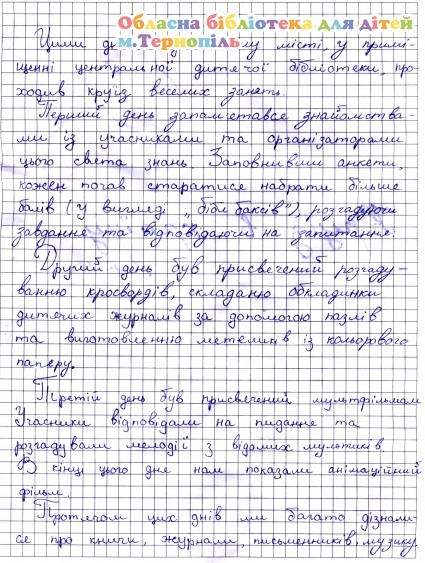 Обласна бібліотека для дітей
м.Тернопіль
Цими му місті, у примі-
щенні центральної дитячої бібліотеки, про-
ходив круїз веселих занять.
Перший день запам'ятався знайомства-
ми із учасниками та організаторами
цього свята знань. Заповнивши анкети,
кожен почав старатися набрати більше
балів (у вигляді „бібл баксів"), розгадуючи
завдання та відповідаючи на запитання.
Другий день був присвячений розгаду-
ванню кросвордів, складаню обкладинки
дитячих журналів за допомогою пазлів
та виготовленню метеликів із кольорового
паперу.
Третій день був присвячений мультфільмам
Учасники відповідали на питання та
розгадували мелодії з відомих мультиків
В кінці цього дня нам показали анімаційний
фільм.
Протягом цих днів ми багато дізнали-
ся про книги, журнали, письменників, музику.